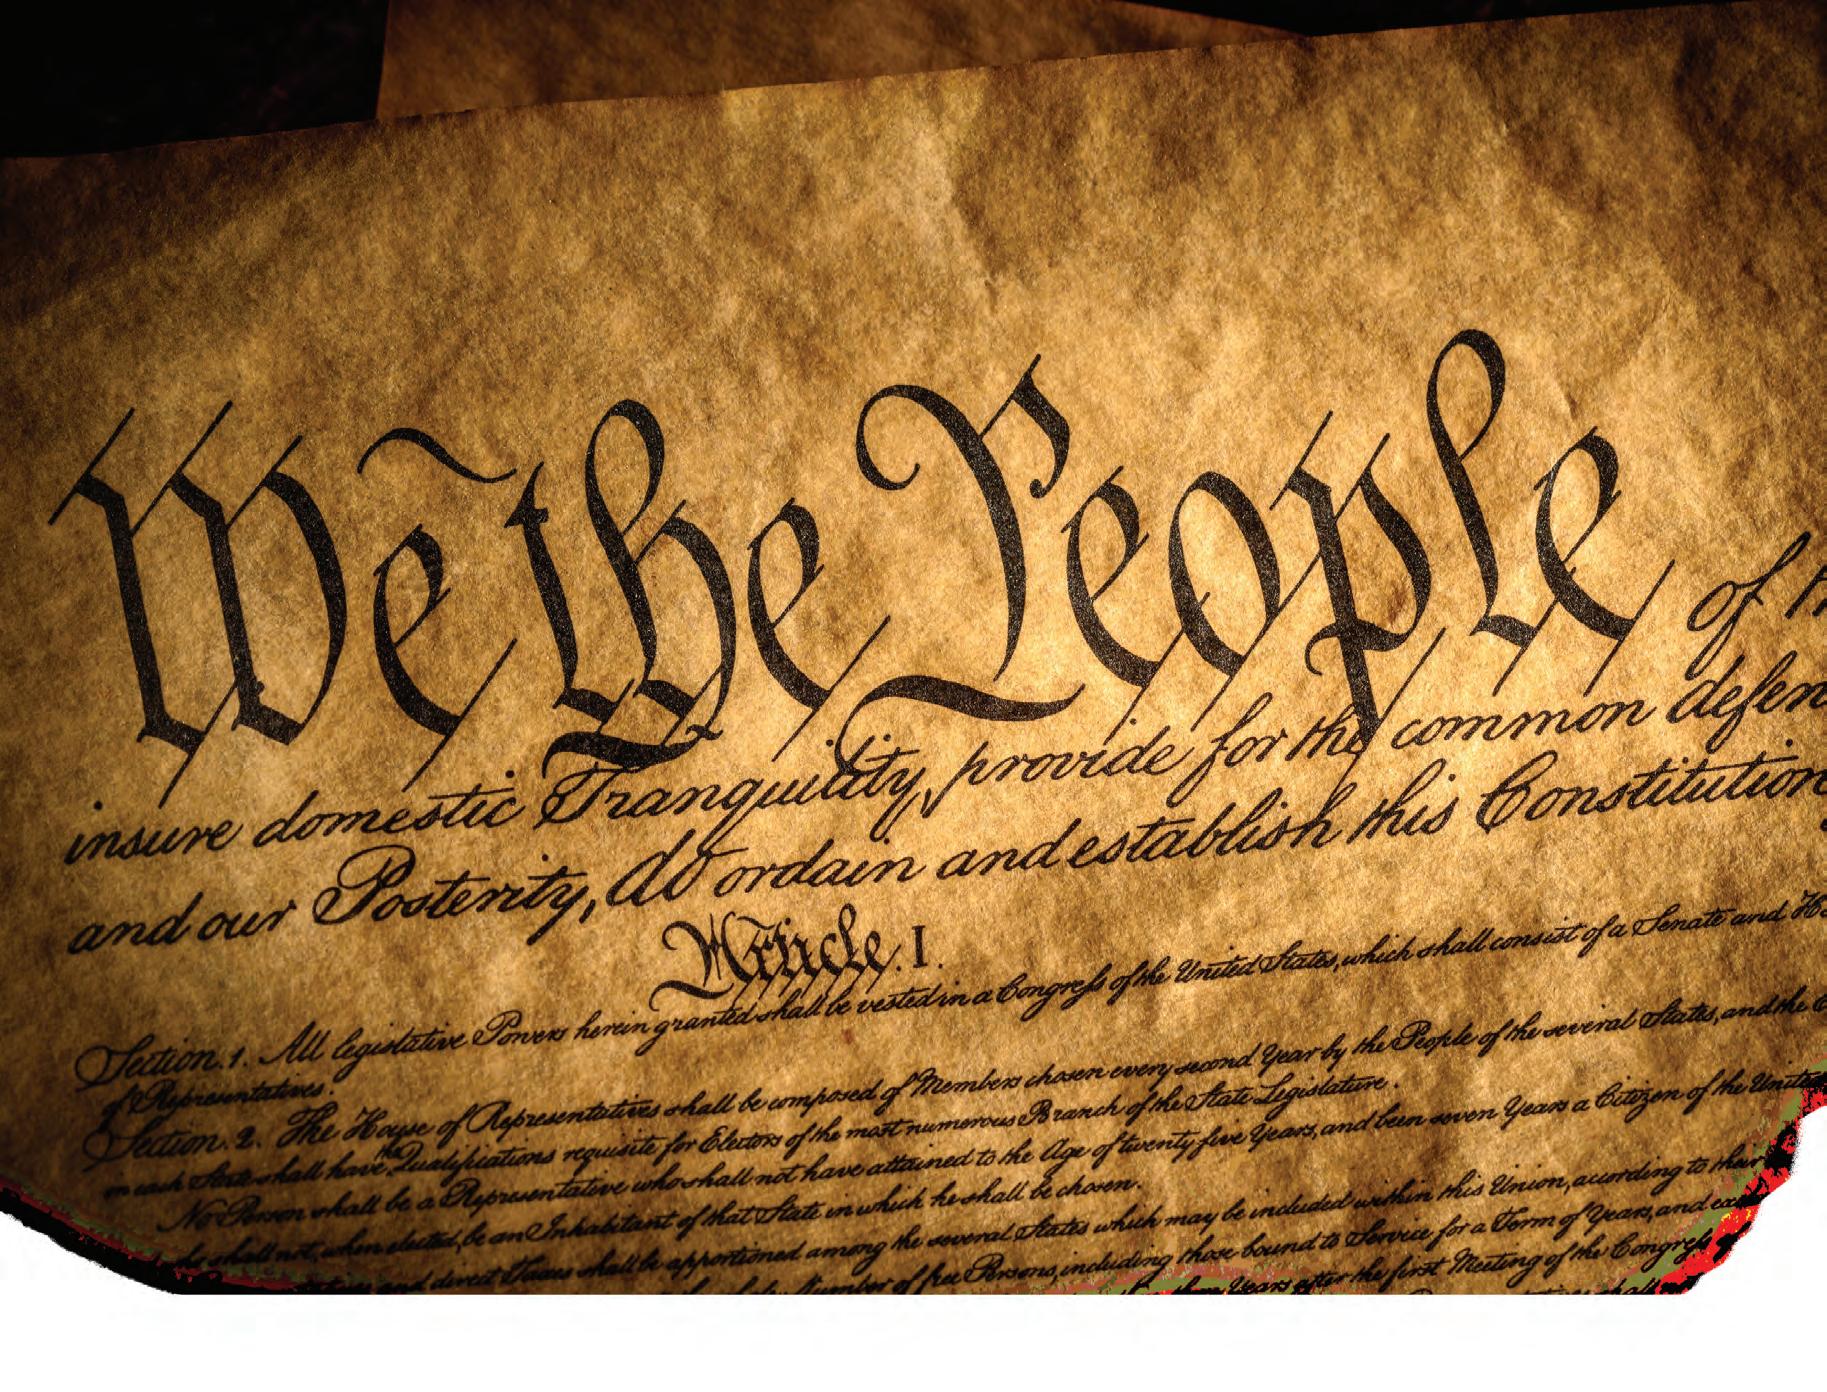 We the People of
insure domestic Tranquility, provide for the common defen
and our Posterity, do ordain and establish this Constitution
Article. I.
Section. 1. All legislative Powers herein granted shall be vested in a Congress of the United States, which shall consist of a Senate and
of Representatives.
Section. 2. The House of Representatives shall be composed of Members chosen every second Year by the People of the several States, and the
in each State shall have the Qualifications requisite for Electors of the most numerous Branch of the State Legislature.
No Person shall be a Representative who shall not have attained to the Age of twenty five Years, and been seven Years a Citizen of the United
shall not, when elected, be an Inhabitant of that State in which he shall be chosen.
and direct Taxes shall be apportioned among the several States which may be included within this Union, according to their
Number of free Persons, including those bound to Service for a Term of Years, and
Years after the first Meeting of the Congress
shall